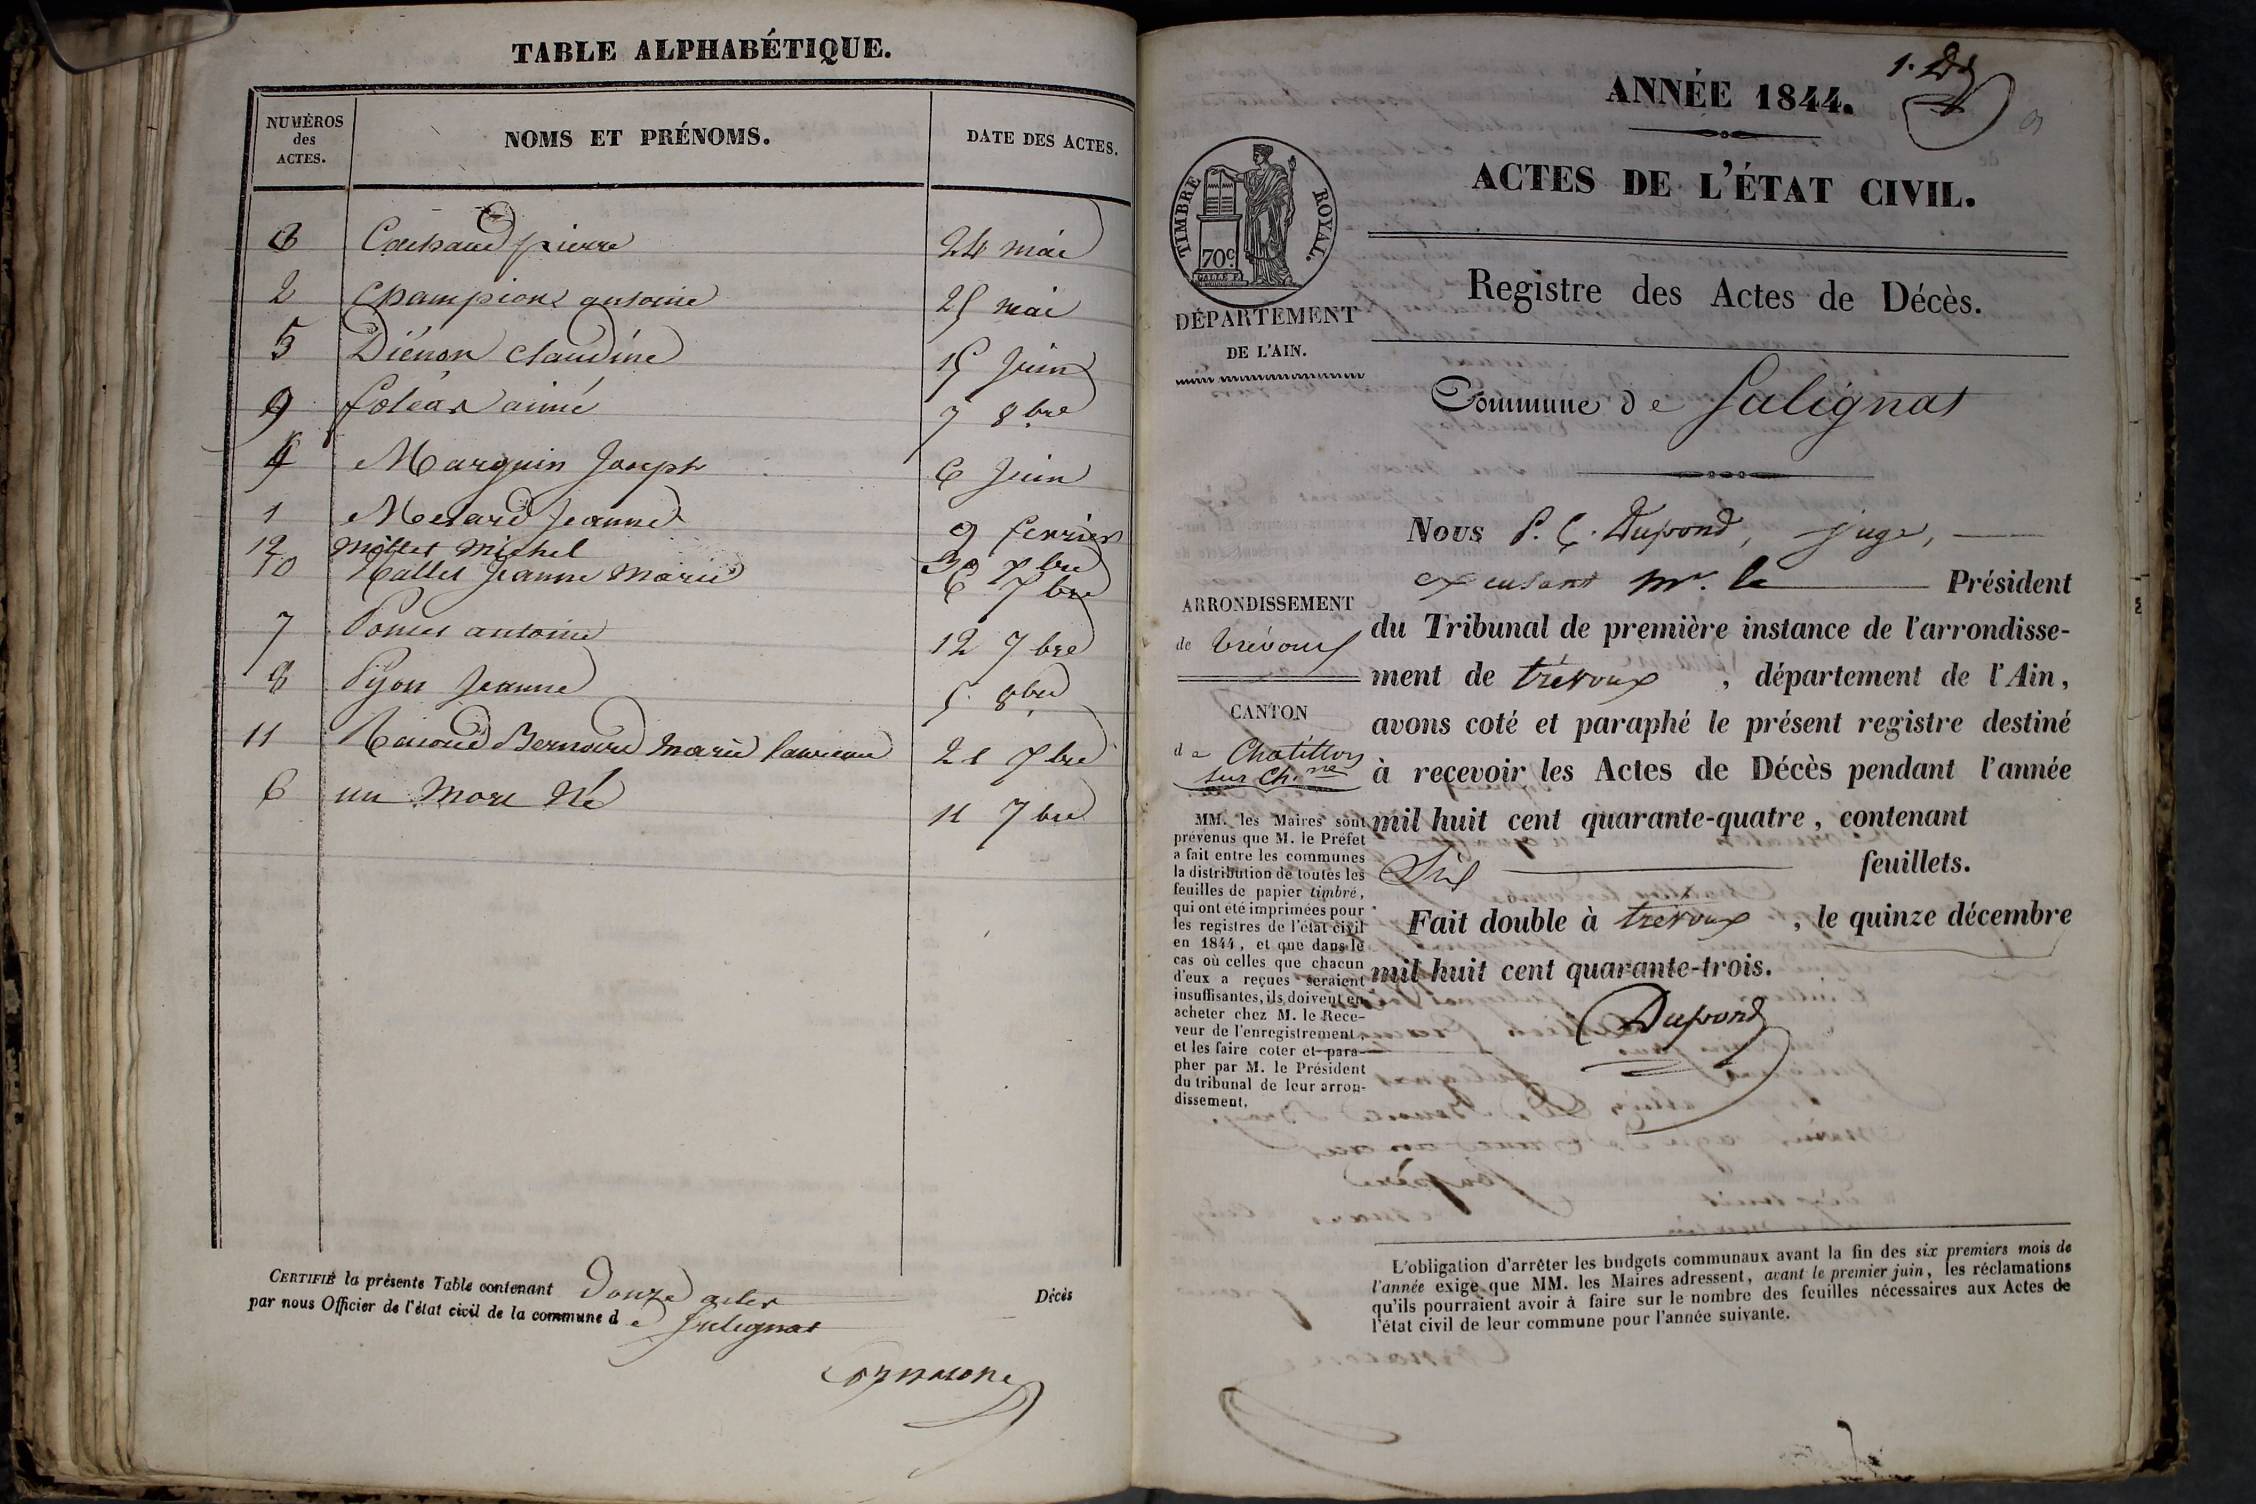 TABLE ALPHABÉTIQUE.
NUMÉROS des ACTES. NOMS ET PRÉNOMS. DATE DES ACTES.
3 pierre 24 mai
2 Champion antoine 25 mai
5 Diénon claudine 15 Juin
9 aimé 7 8bre
4 Marguin Joseph 6 Juin
1 Jeanne 9
12 Millet Michel 30 bre
10 Jeanne Marie 6 bre
7 Poncet antoine 12 7bre
8 Pijon Jeanne 5 8bre
11 Bernard Marie 21 bre
6 un Mort Né 11 7bre
CERTIFIÉ la présente Table contenant Douze actes Décès
par nous Officier de l'état civil de la commune d e Sulignat
1.
ANNÉE 1844.
ACTES DE L'ÉTAT CIVIL.
TIMBRE ROYAL.
70c
DÉPARTEMENT
DE L'AIN.
Registre des Actes de Décès.
Commune de Sulignat
Nous P. Dupond, juge,
excusant Mr. le Président
du Tribunal de première instance de l'arrondisse-
ment de trévoux, département de l'Ain,
avons coté et paraphé le présent registre destiné
à recevoir les Actes de Décès pendant l'année
mil huit cent quarante-quatre, contenant
feuillets.
Fait double à trévoux, le quinze décembre
mil huit cent quarante-trois.
Dupond
ARRONDISSEMENT
de trévoux
CANTON
de Chatillon
sur Ch.ne
MM. les Maires sont
prévenus que M. le Préfet
a fait entre les communes
la distribution de toutes les
feuilles de papier timbré,
qui ont été imprimées pour
les registres de l'état civil
en 1844, et que dans le
cas où celles que chacun
d'eux a reçues seraient
insuffisantes, ils doivent en
acheter chez M. le Rece-
veur de l'enregistrement,
et les faire coter et para-
pher par M. le Président
du tribunal de leur arron-
dissement.
L'obligation d'arrêter les budgets communaux avant la fin des six premiers mois de
l'année exige que MM. les Maires adressent, avant le premier juin, les réclamations
qu'ils pourraient avoir à faire sur le nombre des feuilles nécessaires aux Actes de
l'état civil de leur commune pour l'année suivante.